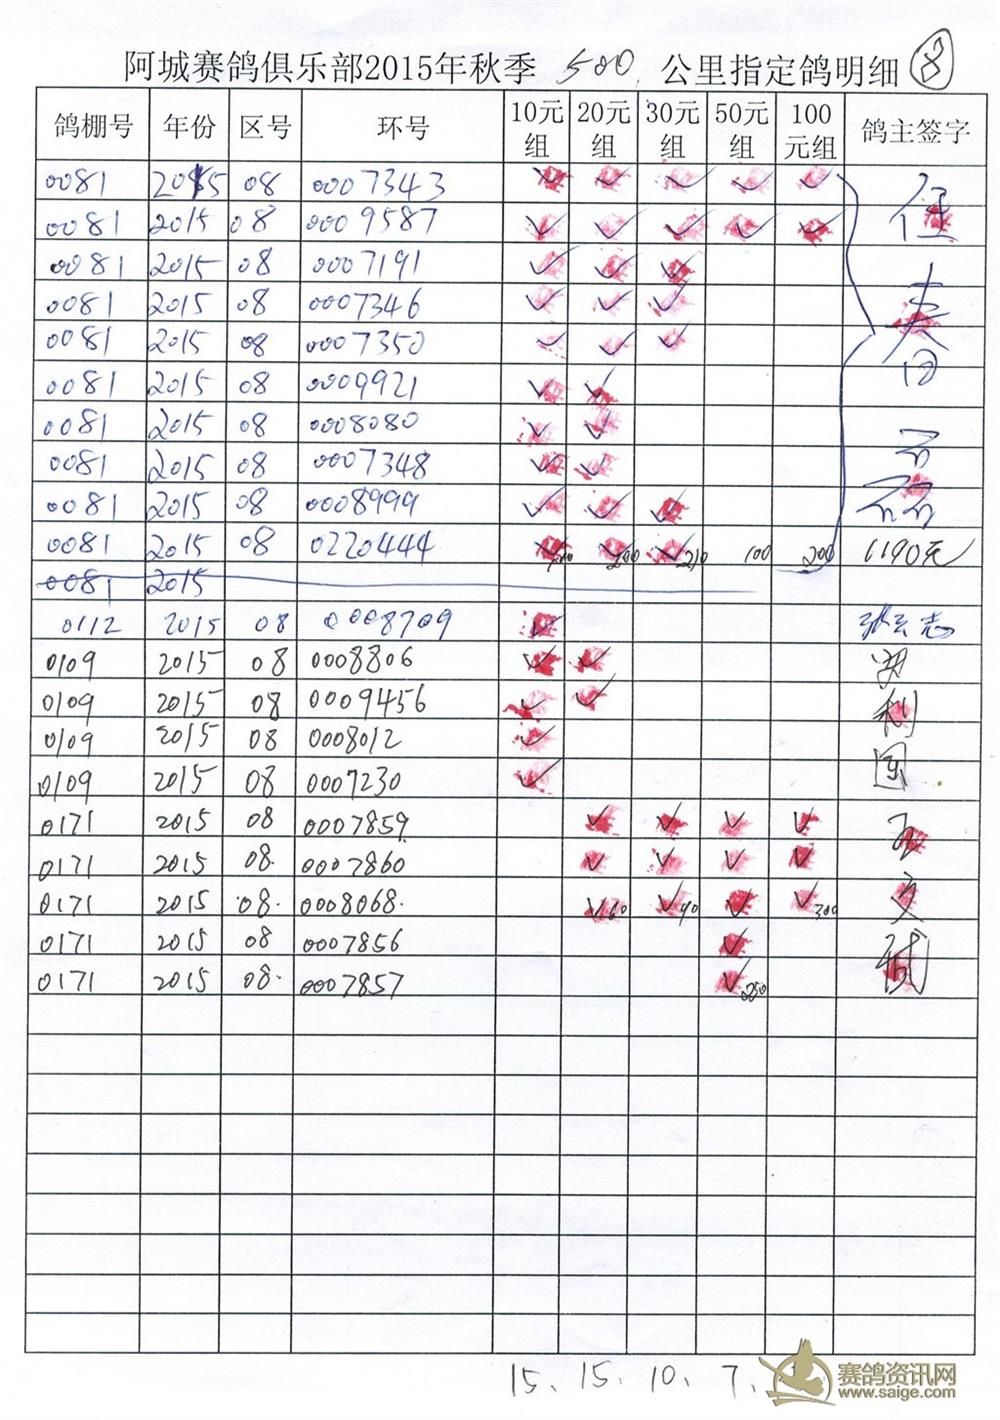 阿城赛鸽俱乐部2015年秋季 500 公里指定鸽明细 8
鸽棚号 年份 区号 环号 10元组 20元组 30元组 50元组 100元组 鸽主签字
0081 2015 08 0007343 ✓ ✓ ✓ ✓ ✓
0081 2015 08 0009587 ✓ ✓ ✓ ✓ ✓
0081 2015 08 0007191 ✓ ✓ ✓
0081 2015 08 0007346 ✓ ✓ ✓
0081 2015 08 0007350 ✓ ✓ ✓
0081 2015 08 0009921 ✓ ✓
0081 2015 08 0008080 ✓ ✓
0081 2015 08 0007348 ✓ ✓
0081 2015 08 0008999 ✓ ✓ ✓
0081 2015 08 0220444 ✓ 100 ✓ 200 ✓ 210 100 200 1190元
0081 2015
0112 2015 08 0008709 ✓
0109 2015 08 0008806 ✓ ✓
0109 2015 08 0009456 ✓ ✓
0109 2015 08 0008012 ✓
0109 2015 08 0007230 ✓
0171 2015 08 0007859 ✓ ✓ ✓ ✓
0171 2015 08. 0007860 ✓ ✓ ✓ ✓
0171 2015 08. 0008068. ✓ 60 ✓ 90 ✓ ✓ 300
0171 2015 08 0007856 ✓
0171 2015 08. 0007857 ✓ 250
15. 15. 10. 7.
赛鸽资讯网
www.saige.com